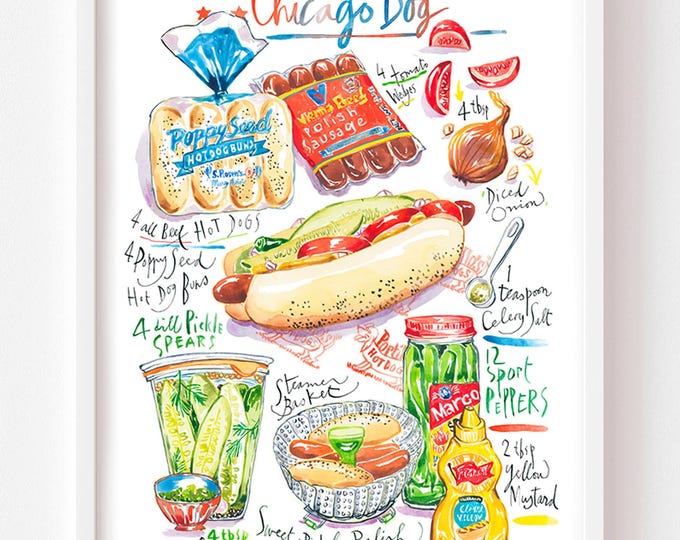 Chicago Dog
Poppy Seed
HOT DOG BUNS
S. Rosen's
Vienna Beef
Polish
Sausage
4 tomato
Wedges
4 tbsp
Diced
Onion
4 all Beef HOT DOGS
4 Poppy Seed
Hot Dog Buns
1
teaspoon
Celery Salt
4 dill Pickle
SPEARS
HOT DOG
12
Sport
PEPPERS
Steamer
Basket
Marco
2 tbsp
Yellow
Mustard
YELLOW
4 tbsp
Sweet Pickle Relish